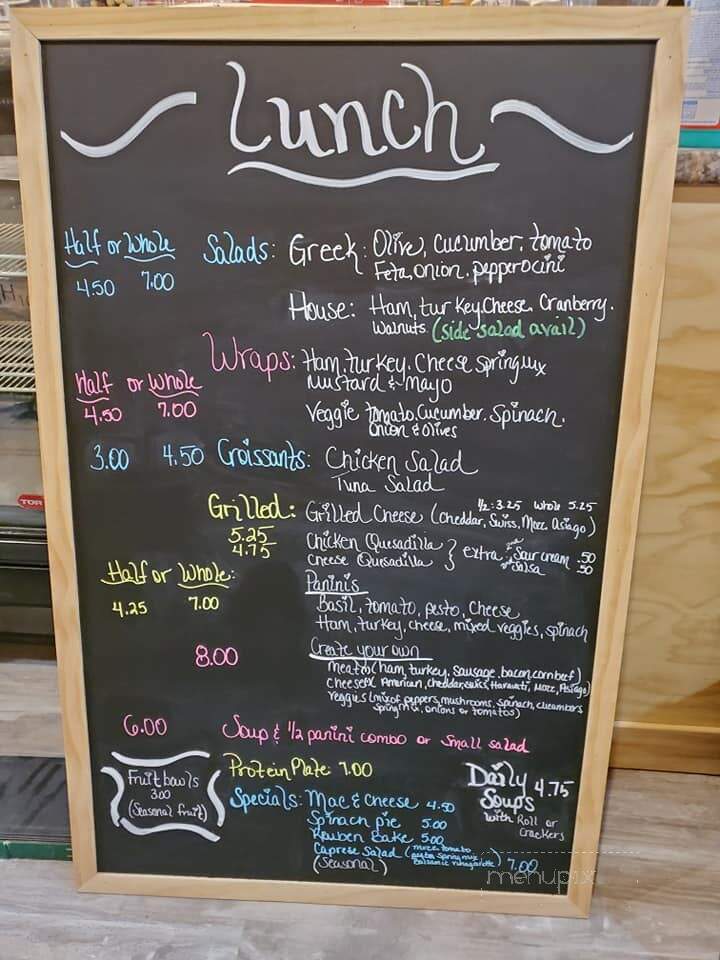 Lunch
Half or Whole
4.50 7.00
Salads: Greek: Olive, cucumber, tomato
Feta, onion, pepperocini
House: Ham, turkey, Cheese, Cranberry.
Walnuts (side salad avail)
Half or Whole
4.50 7.00
Wraps: Ham, turkey, Cheese Spring mix
Mustard & Mayo
Veggie tomato, Cucumber, Spinach,
Onion & Olives
3.00 4.50 Croissants: Chicken Salad
Tuna Salad
1/2: 3.25 Whole 5.25
Grilled: Grilled Cheese (Cheddar, Swiss, Mozz, Asiago)
5.25 Chicken Quesadilla
4.75 Cheese Quesadilla
} extra Sour cream .50
Salsa .50
Half or Whole:
4.25 7.00
Paninis
Basil, tomato, pesto, Cheese
Ham, turkey, cheese, mixed veggies, spinach
8.00
Create your own
meats (ham, turkey, sausage, bacon, corn beef)
cheese( American, cheddar, swiss, Havarati, Mozz, Asiago)
veggies (mix of peppers, mushrooms, spinach, cucumbers
spring mix, onions or tomatos)
6.00 Soup & 1/2 panini combo or small salad
Fruit bowls
3.00
(Seasonal fruit)
Protein Plate: 7.00
Specials: Mac & Cheese 4.50
Spinach pie 5.00
Reuben Bake 5.00
Caprese Salad (mozz tomato
spring mix
balsamic vinaigarette) 7.00
(Seasonal)
Daily 4.75
Soups
with Roll or
crackers
TOR
menupix